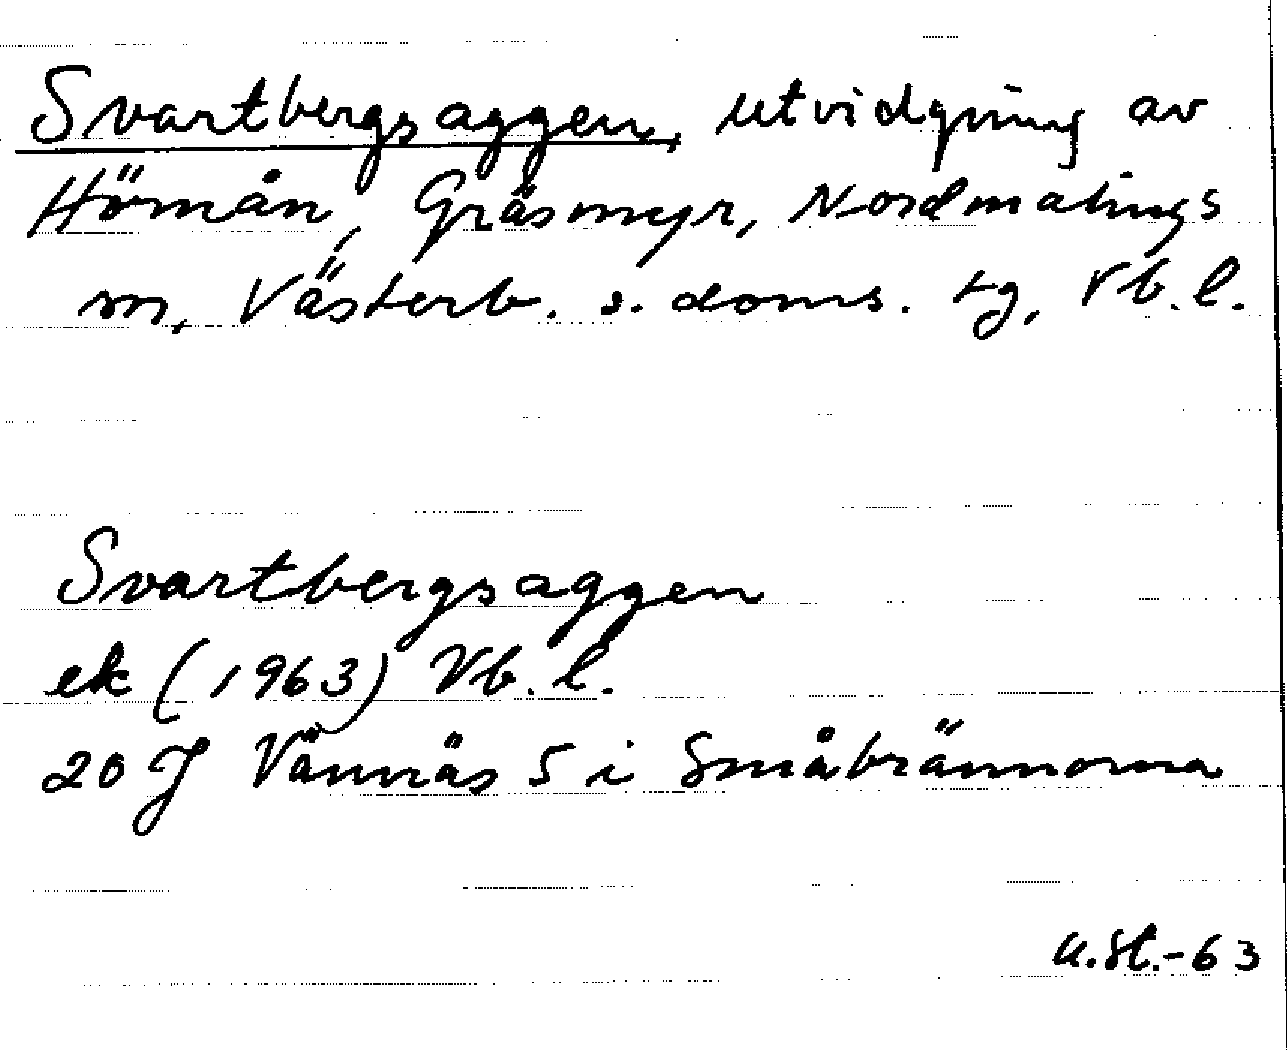 Svartbergsaggen, utvidgning av
Hörnån, Gräsmyr, Nordmalings
sn, Västerb. s. doms. tg, Vb. l.
Svartbergsaggen
ek (1963) Vb. l.
20 J Vännäs 5 i Småbrännorna
U.St.-63